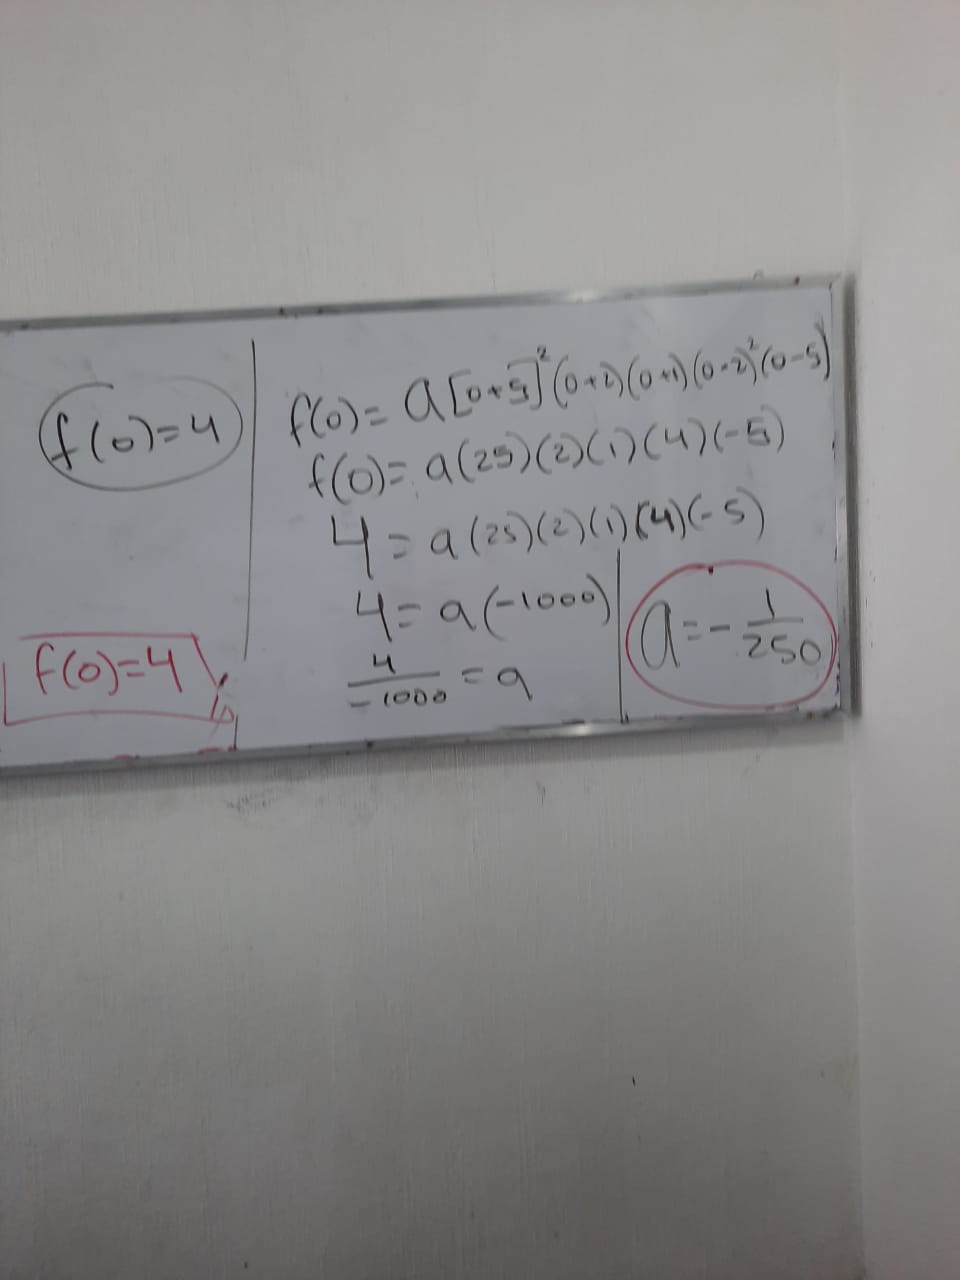 f(0)=4
f(0)=4
f(0)= a[0+5]²(0+2)(0+1)(0-2)²(0-5)
f(0)= a(25)(2)(1)(4)(-5)
4=a(25)(2)(1)(4)(-5)
4=a(-1000)
4/-1000=a
a=-1/250